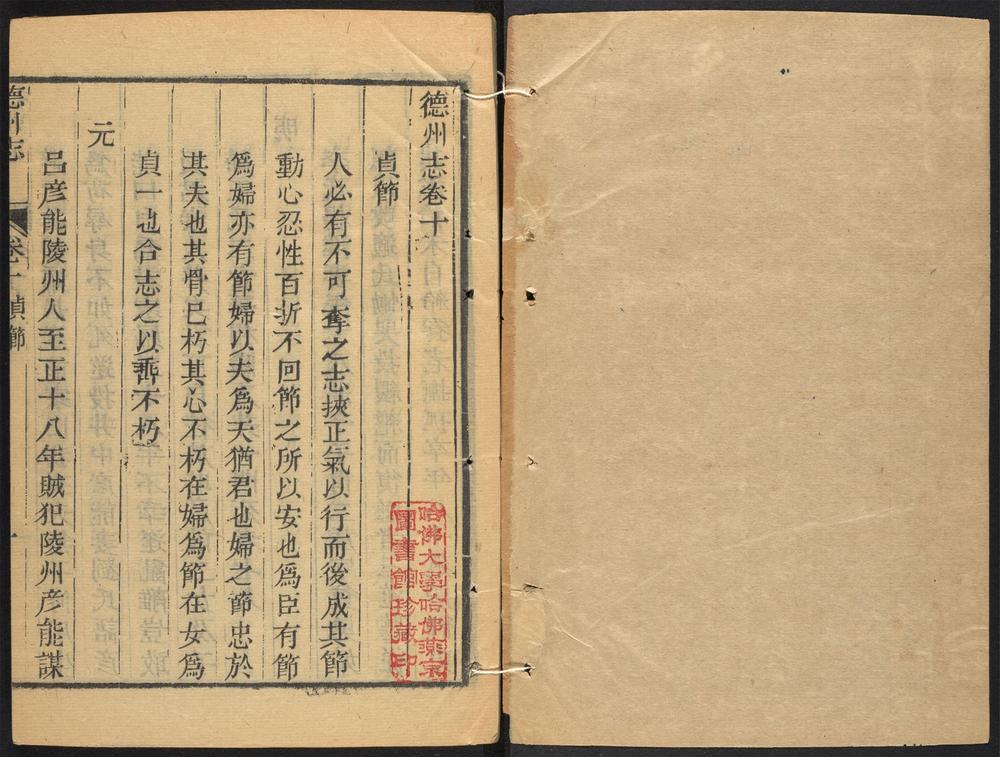 德州志卷十
貞節
人必有不可奪之志挾正氣以行而後成其節
動心忍性百折不回節之所以安也爲臣有節
爲婦亦有節婦以夫爲天猶君也婦之節忠於
其夫也其骨已朽其心不朽在婦爲節在女爲
貞一也合志之以垂不朽
元
呂彦能陵州人至正十八年賊犯陵州彦能謀
德州志
卷十
貞節
一
哈佛大學哈佛燕京
圖書館珍藏印